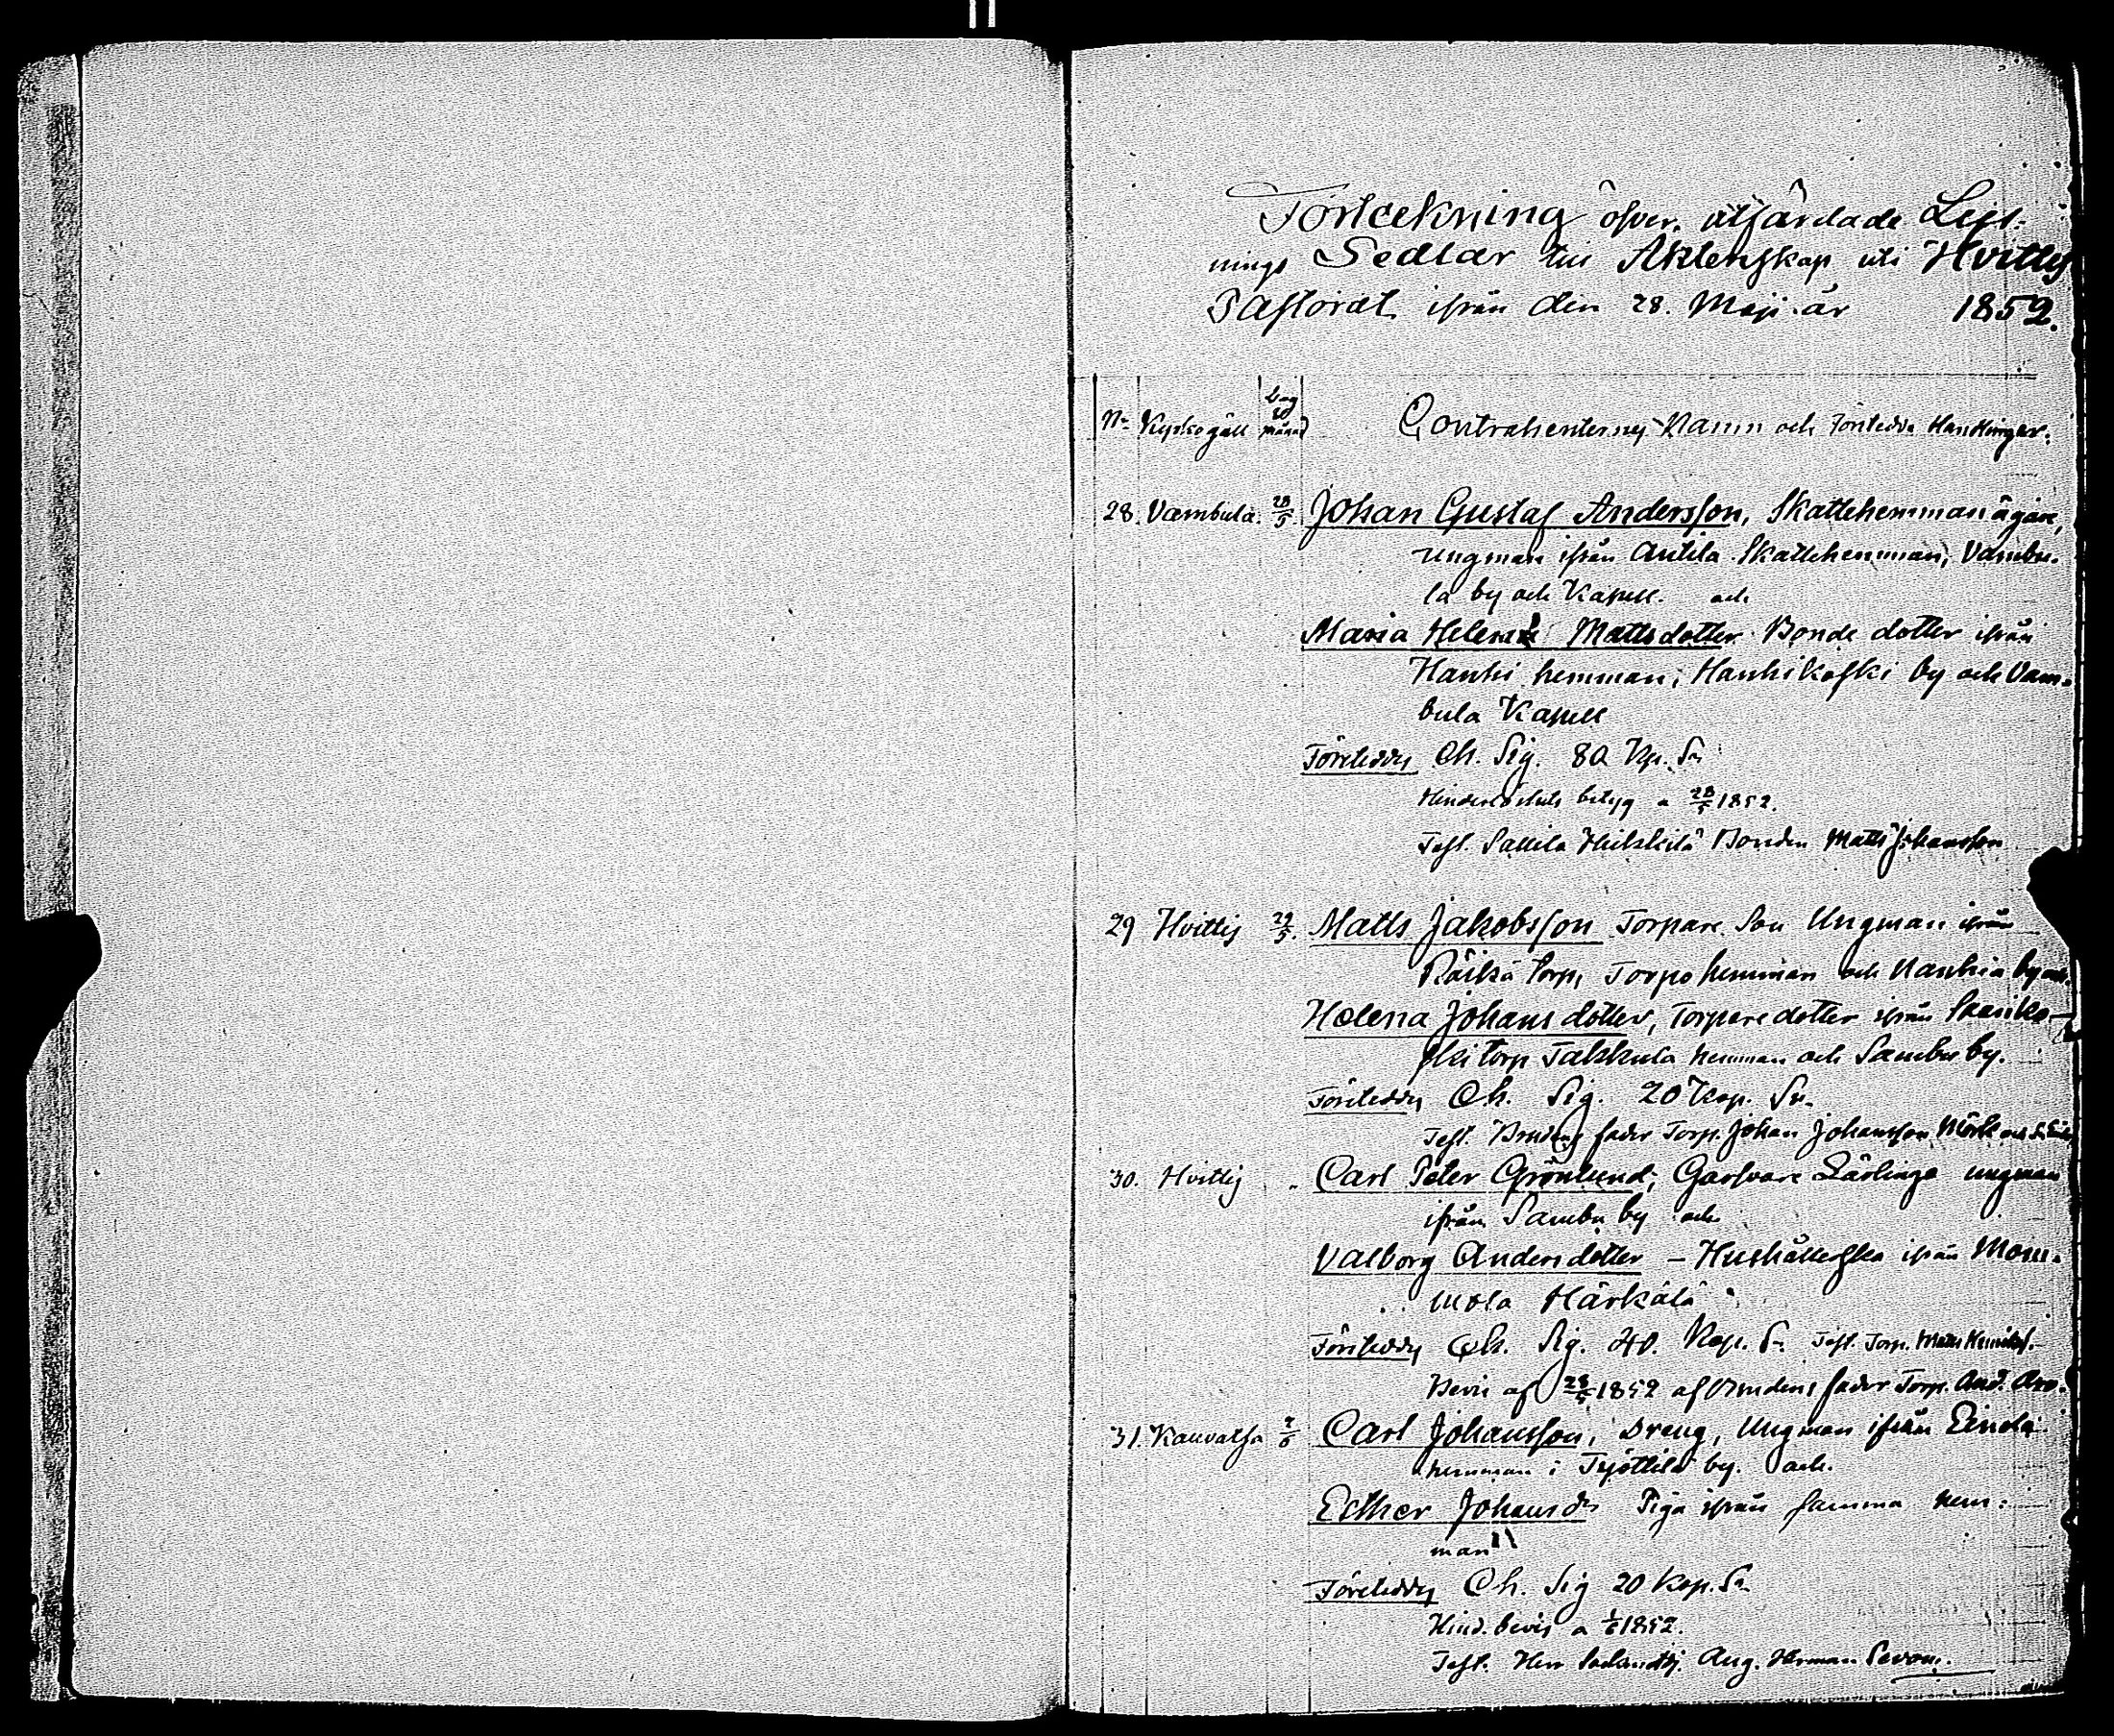 Förteckning öfver utfärdade Lys-
nings Sedlar till Äktenskap uti Hvittis
Pastorat ifrån den 28. Maji år 1852.
Nr Kyrkogäll Dag och månad Contrahenternes Namn och Företedde Handlingar.
28. Vambula. 28/5 Johan Gustaf Andersson, Skattehemmansägare,
Ungman ifrån Antila Skattehemman, Vambu-
la by och Kapell. och
Maria Helena Mattsdotter Bonde dotter ifrån
Hanhi hemman, Hanhikoski by och Vam-
bula Kapell
Företeddes Ch. Sig. 80 Kp. Sr
Hinderlöshets betyg a 28/5 1852.
Test. Sallila Heikkilä Bonden Matts Johansson
29 Hvittis 29/5. Matts Jakobsson Torpare Son Ungman ifrån
Räikä torp, Torpo hemman och Nanhia by och
Helena Johansdotter, Torparedotter ifrån
torp Takkula hemman och Sambu by.
Företeddes Ch. Sig. 20 Kop. Sr.
Test. Brudens fader Torp. Johan Johansson Mörk
30. Hvittis " Carl Peter Grönlund, Garfvare Lärlinge ungman
ifrån Sambu by och
Valborg Andersdotter – Hushållerska ifrån Mom-
mola Härkälä
Företeddes Ch. Sig. 40. Kop. Sr. Test. Torp. Matts
Bevis af 28/5 1852 af Brudens fader Torp. And.
31. Kauvatsa 2/6 Carl Johansson, Dreng, Ungman ifrån
hemman i Työttilä by. och
Esther Johansdr Piga ifrån samma hem-
man
Företeddes Ch. Sig 20 Kop. Sr
Hind. bevis a 1/6 1852.
Test. Herr Aug. Herman Sevon.